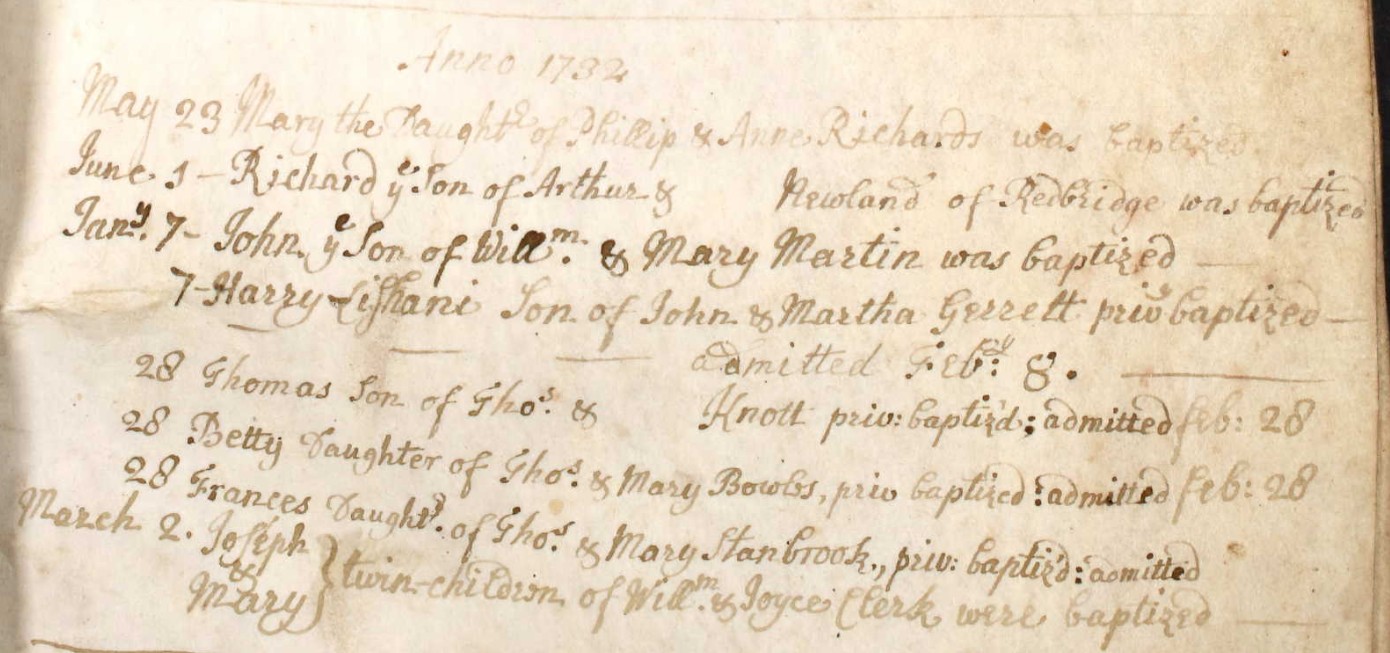 Anno 1732
May 23 Mary the Daughtr of Phillip & Anne Richards was baptized.
June 1 – Richard ye Son of Arthur & Newland of Redbridge was baptized
Jany. 7 – John ye Son of Willm. & Mary Martin was baptized —
7 – Harry Son of John & Martha Gerrett priv baptized —
admitted Feby: 8.
28 Thomas Son of Thos. & Knott priv: baptiz'd; admitted feb: 28
28 Betty Daughter of Thos. & Mary Bowles, priv baptized: admitted feb: 28
28 Frances Daughtr. of Thos. & Mary Stanbrook, priv: baptiz'd: admitted
March 2. Joseph
& } twin-children of Willm. & Joyce Clerk were baptized —
Mary